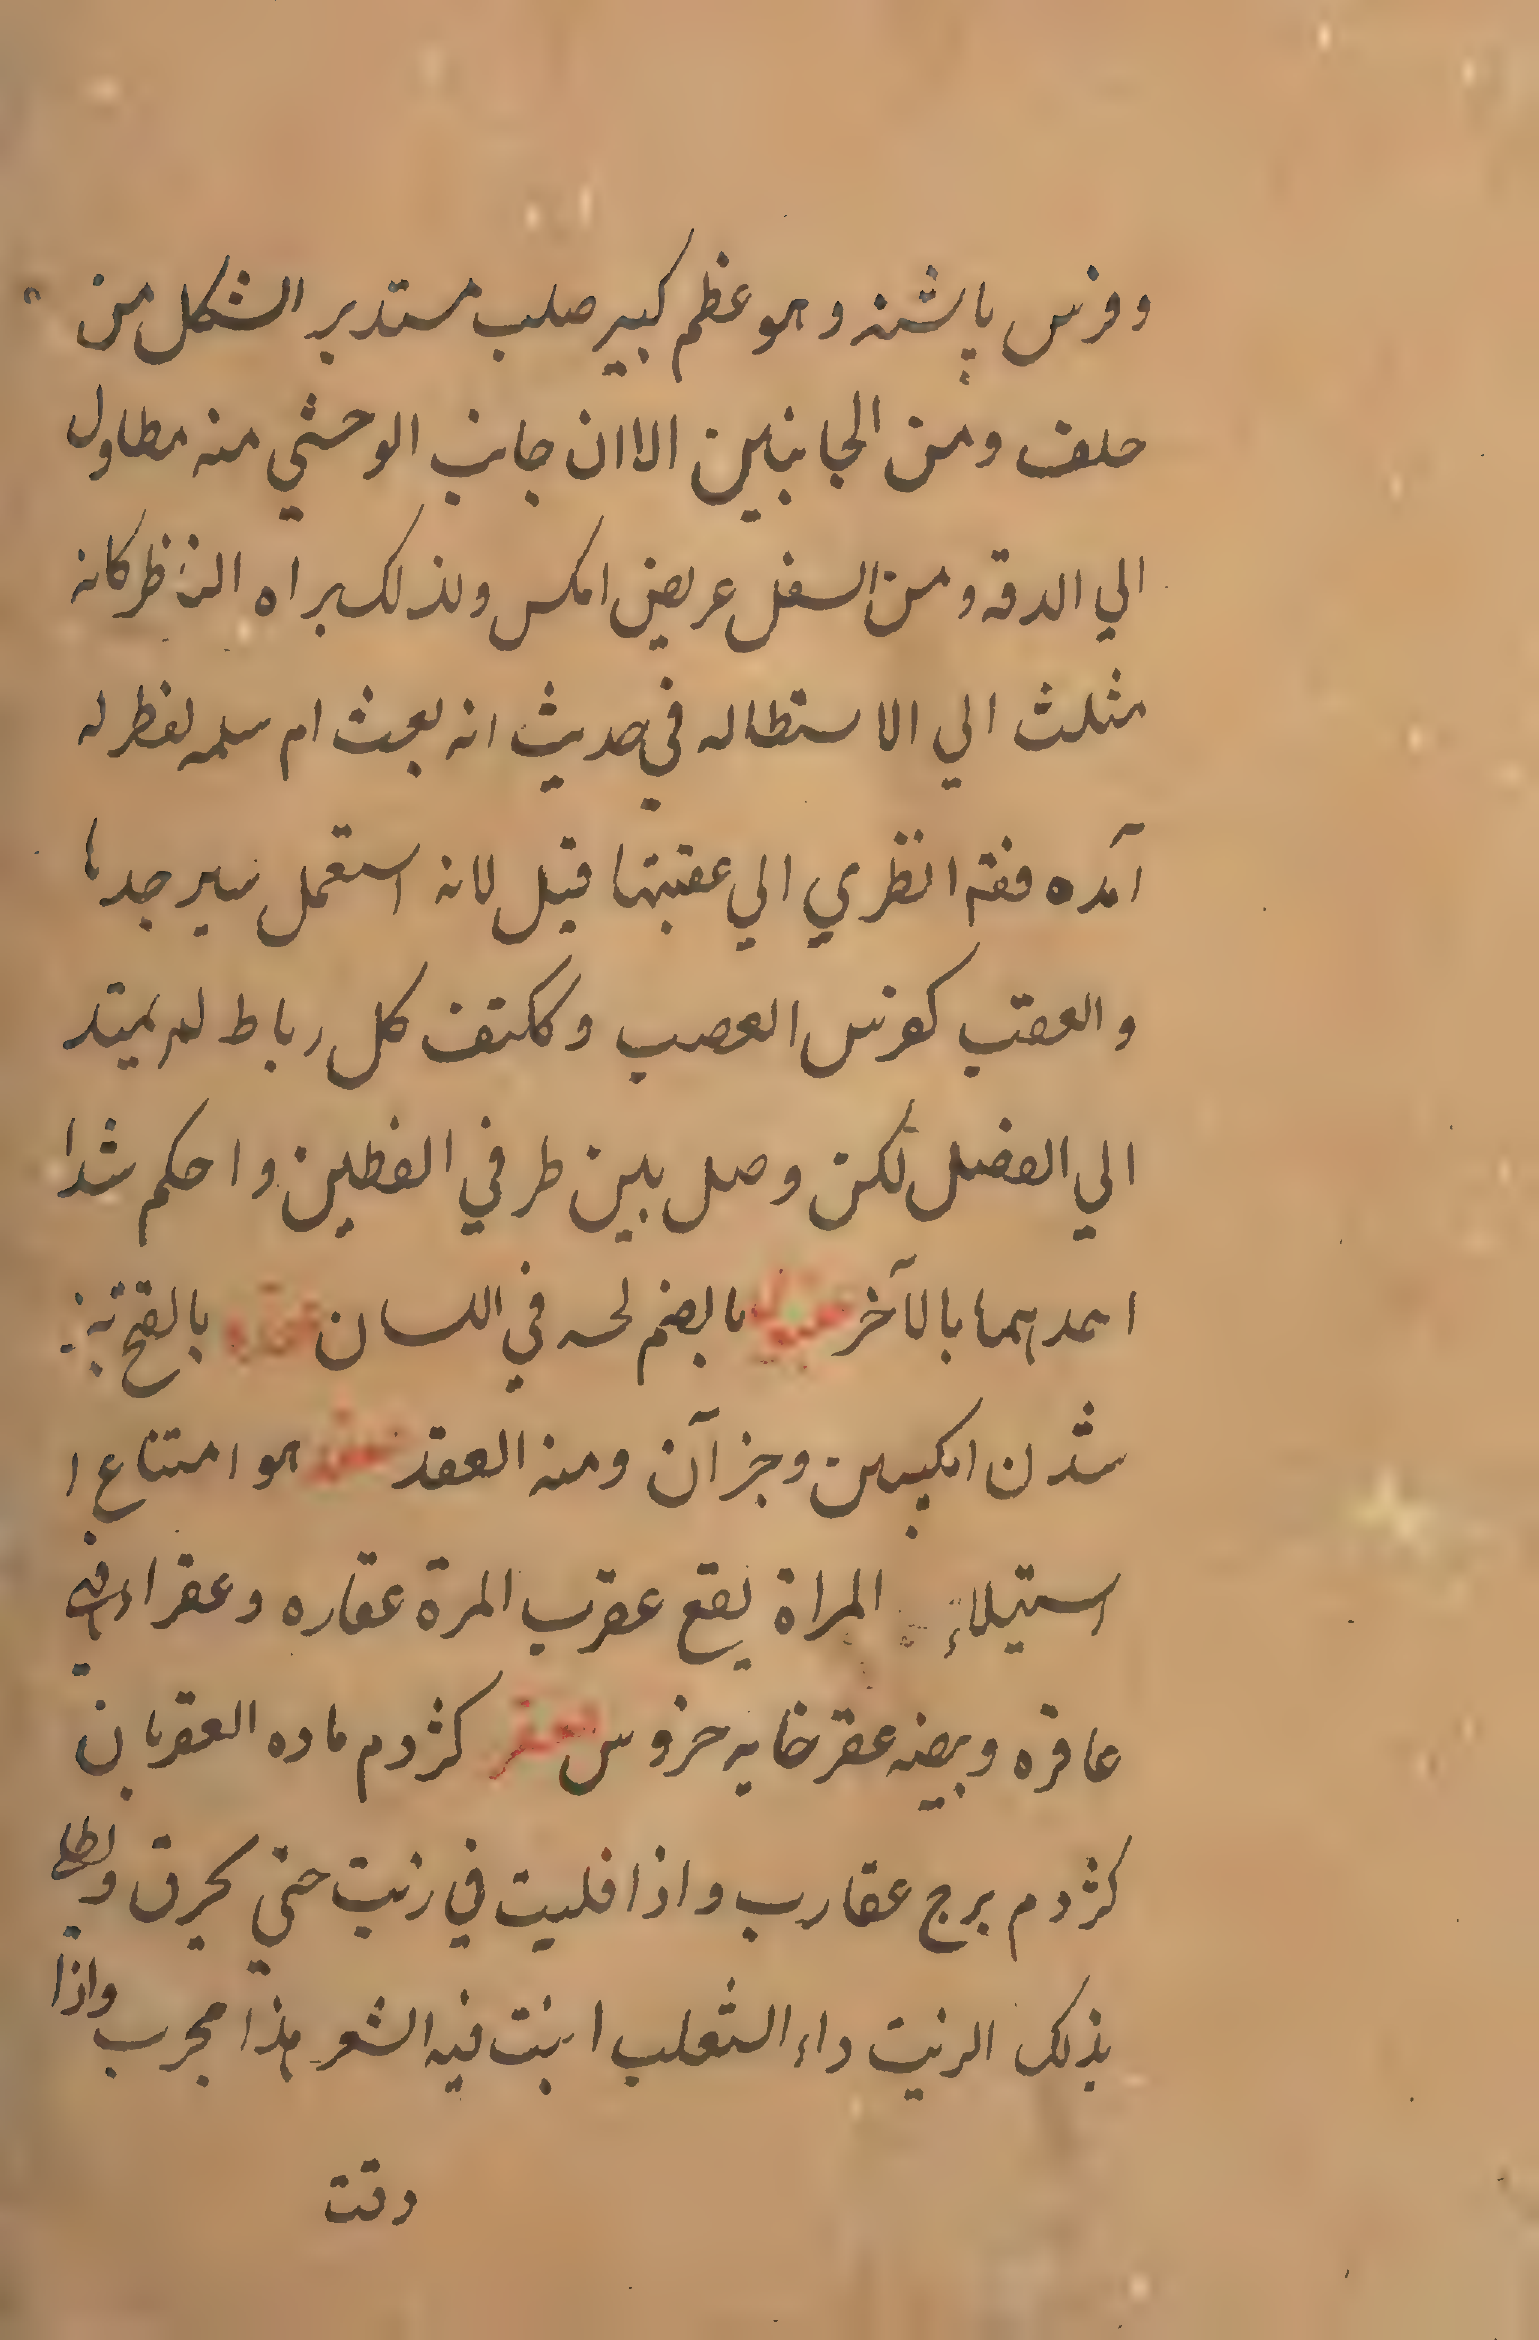 وفرس پاشنه وهو عظم كبير صلب مستدير الشكل من
حلف ومن الجانبين الاان جانب الوحشي منه مطاول
الي الدقه ومن السفل عريض امكس ولذلك براه الناظر كانه
مثلث الي الاستطاله في حديث انه بعث ام سلمه لفطر له
آمده فقم انظري الي عقبتها قيل لانه استعمل سير جدها
والعقب كفرس العصب وككتف كل رباط لم يمتد
الي الفضل لكن وصل بين طرفي الفطين واحكم شدا
احدهما بالآخر بالضم لحمه في اللسان عقده بالفتح
شدن انكبين وجز آن ومنه العقد عقد هو امتناع ا
استيلاء المراة يقع عقرب المرة عقاره وعقراء فهي
عاقره وبيضه عقر خايه خروس عقر كژدم ماده العقربان
كژدم برج عقارب واذا فليت في زيت حتي يحرق وبطلي
بذلك الزيت داء الثعلب ابنت فيه الشعر هذا مجرب واذا
دقت